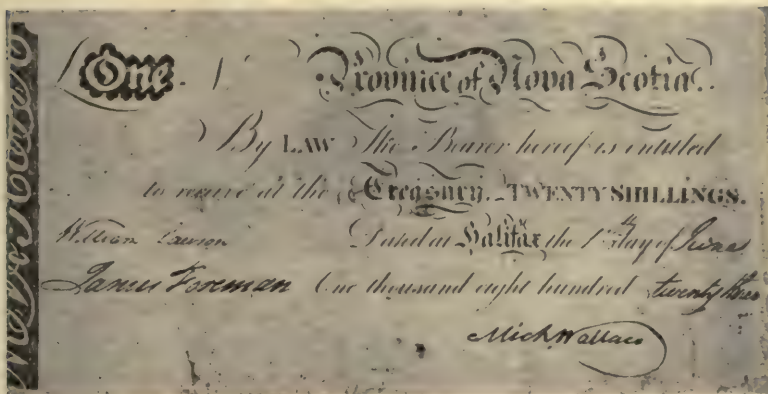 £ One.
Province of Nova Scotia.
By LAW The Bearer hereof is entitled
to receive at the Treasury. TWENTY SHILLINGS.
William Lawson Dated at Halifax the 1st day of June
James Foreman One thousand eight hundred twenty three
Mich Wallace